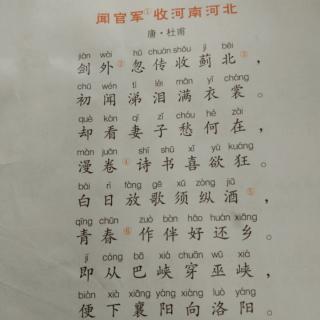 闻官军①收河南河北
唐·杜甫
jiàn wài hū chuán shōu jì běi
剑外②忽传收蓟北③，
chū wén tì lèi mǎn yī cháng
初闻涕泪满衣裳。
què kàn qī zǐ chóu hé zài
却看妻子愁何在，
màn juàn shī shū xǐ yù kuáng
漫卷④诗书喜欲狂。
bái rì fàng gē xū zòng jiǔ
白日放歌须纵酒⑤，
qīng chūn zuò bàn hǎo huán xiāng
青春⑥作伴好还乡。
jí cóng bā xiá chuān wū xiá
即从巴峡穿巫峡，
biàn xià xiāng yáng xiàng luò yáng
便下襄阳向洛阳。